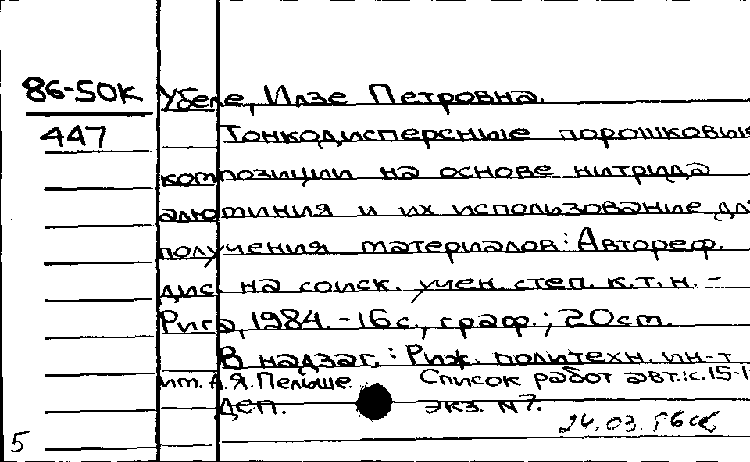 86-50К Убеле, Илзе Петровна.
447 Тонкодисперсные порошковые
композиции на основе нитрида
алюминия и их использование дл
получения материалов: Автореф.
дис. на соиск. учен. степ. к.т.н. -
Рига, 1984. - 16 с., граф.; 20 см.
В надзаг.: Риж. политехн. ин-т
им. А.Я. Пельше Список работ авт.: с. 15-1
Деп. экз. №7.
24.03.86
5